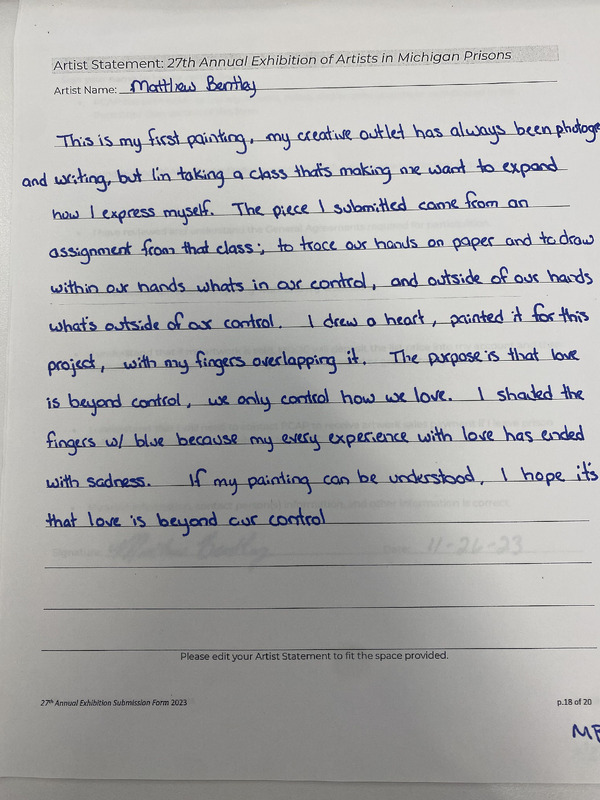 Artist Statement: 27th Annual Exhibition of Artists in Michigan Prisons
Artist Name: Matthew Bentley
This is my first painting, my creative outlet has always been photog
and writing, but I'm taking a class that's making me want to expand
how I express myself. The piece I submitted came from an
assignment from that class; to trace our hands on paper and to draw
within our hands whats in our control, and outside of our hands
what's outside of our control. I drew a heart, painted it for this
project, with my fingers overlapping it. The purpose is that love
is beyond control, we only control how we love. I shaded the
fingers w/ blue because my every experience with love has ended
with sadness. If my painting can be understood, I hope it's
that love is beyond our control
11-26-23
Please edit your Artist Statement to fit the space provided.
27th Annual Exhibition Submission Form 2023
p.18 of 20